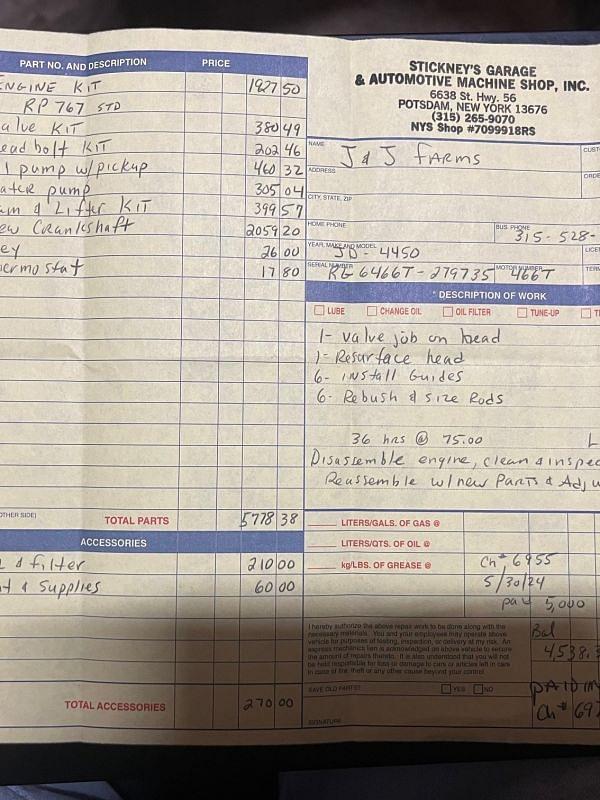 PART NO. AND DESCRIPTION PRICE
ENGINE KIT 1927 50
RP 767 STD
alve KIT 380 49
ead bolt KIT 202 46
l pump w/pickup 460 32
ater pump 305 04
am & Lifter KIT 399 57
ew Crankshaft 2059 20
ey 26 00
ermostat 17 80
OTHER SIDE) TOTAL PARTS 5778 38
ACCESSORIES
& filter 210 00
t & Supplies 60 00
TOTAL ACCESSORIES 270 00
STICKNEY'S GARAGE
& AUTOMOTIVE MACHINE SHOP, INC.
6638 St. Hwy. 56
POTSDAM, NEW YORK 13676
(315) 265-9070
NYS Shop #7099918RS
NAME J & J FARMS CUST
ADDRESS ORDE
CITY, STATE, ZIP
HOME PHONE BUS. PHONE 315-528-
YEAR, MAKE AND MODEL JD - 4450 LICE
SERIAL NUMBER RG 6466T - 279735 MOTOR NUMBER 466T TERM
DESCRIPTION OF WORK
LUBE CHANGE OIL OIL FILTER TUNE-UP T
1- valve job on head
1- Resurface head
6- INStall Guides
6- Rebush & size Rods
36 hrs @ 75.00 L
Disassemble engine, clean & inspec
Reassemble w/new Parts & Adju
LITERS/GALS. OF GAS @
LITERS/QTS. OF OIL @
kg/LBS. OF GREASE @
Ch# 6955
5/30/24
paid 5,000
Bal
4,538.3
I hereby authorize the above repair work to be done along with the
necessary materials. You and your employees may operate above
vehicle for purposes of testing, inspection, or delivery at my risk. An
express mechanics lien is acknowledged on above vehicle to secure
the amount of repairs thereto. It is also understood that you will not
be held responsible for loss or damage to cars or articles left in cars
in case of fire, theft or any other cause beyond your control.
SAVE OLD PARTS? YES NO
PAID IN
Ch# 697
SIGNATURE